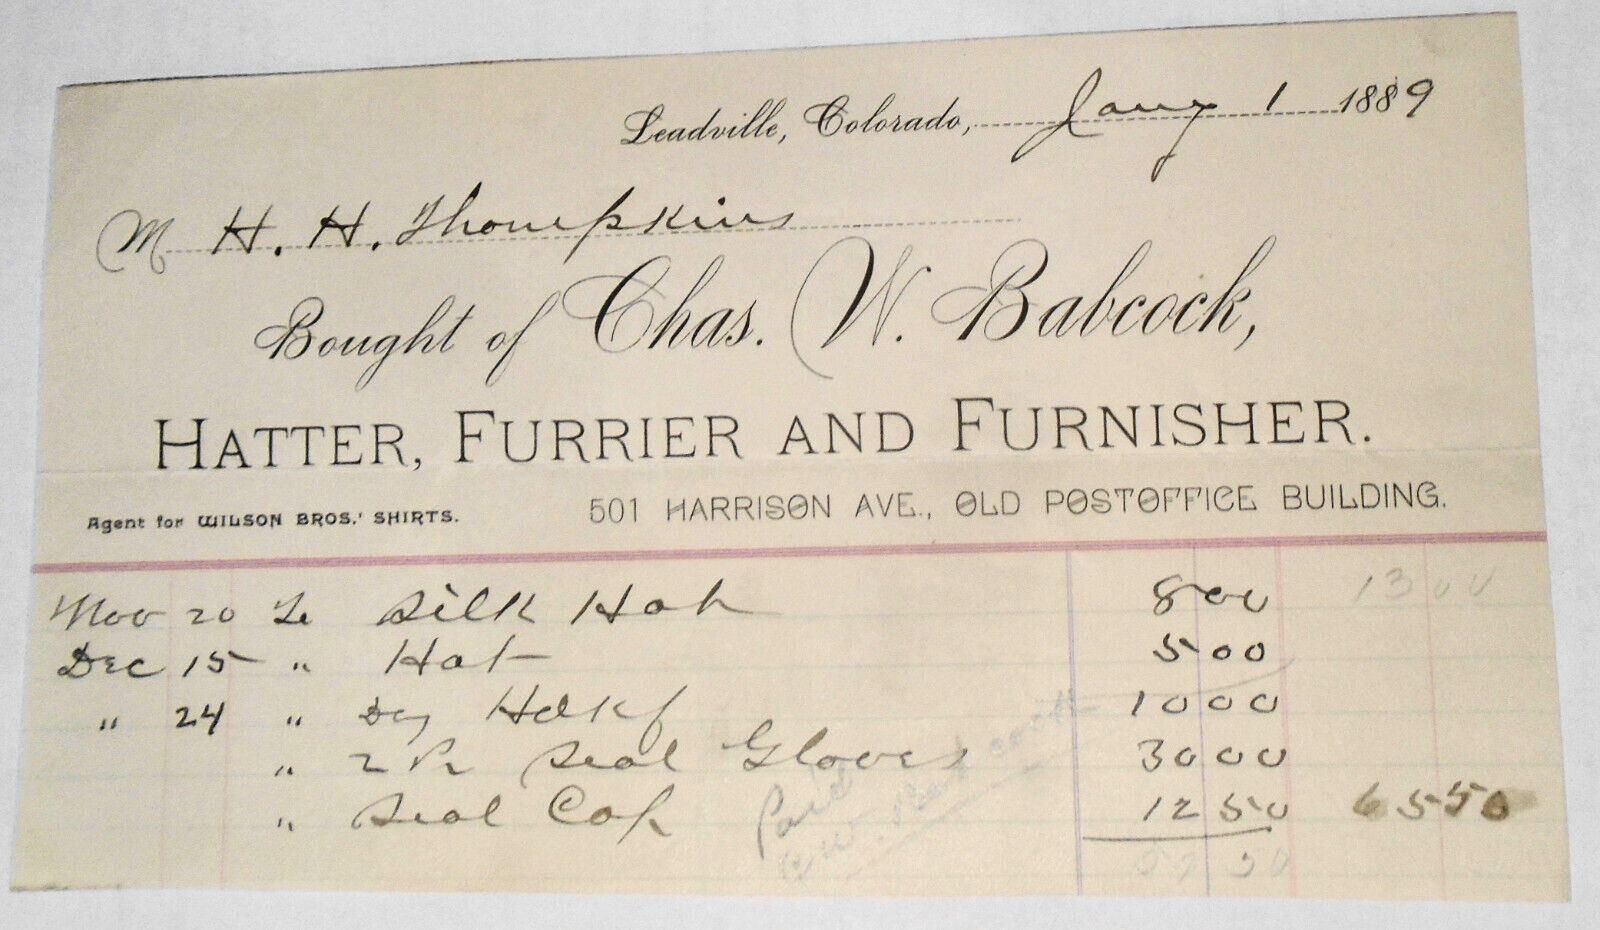 Leadville, Colorado, Jany 1 1889
M H. H. Thompkins
Bought of Chas. W. Babcock,
HATTER, FURRIER AND FURNISHER.
Agent for WILSON BROS.' SHIRTS. 501 HARRISON AVE., OLD POSTOFFICE BUILDING.
Nov 20 To Silk Hat 800 1300
Dec 15 " Hat 500
" 24 " Doz Hdkf 1000
" 2 Pr Seal Gloves 3000
" Seal Cap 1250 6550
Paid
C.W. Babcock